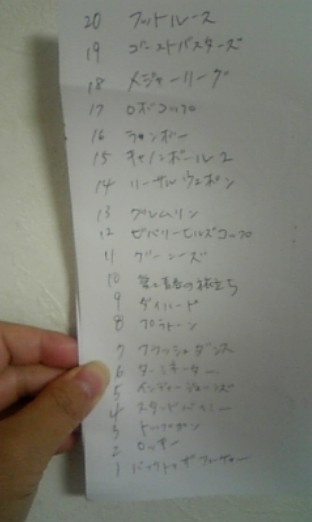 20 フットルース
19 ゴーストバスターズ
18 メジャーリーグ
17 ロボコップ
16 ランボー
15 キャノンボール2
14 リーサルウェポン
13 グレムリン
12 ビバリーヒルズコップ
11 グーニーズ
10 愛と青春の旅立ち
9 ダイハード
8 プラトーン
7 フラッシュダンス
6 ターミネーター
5 インディージョーンズ
4 スタンドバイミー
3 トップガン
2 ロッキー
1 バックトゥザフューチャー